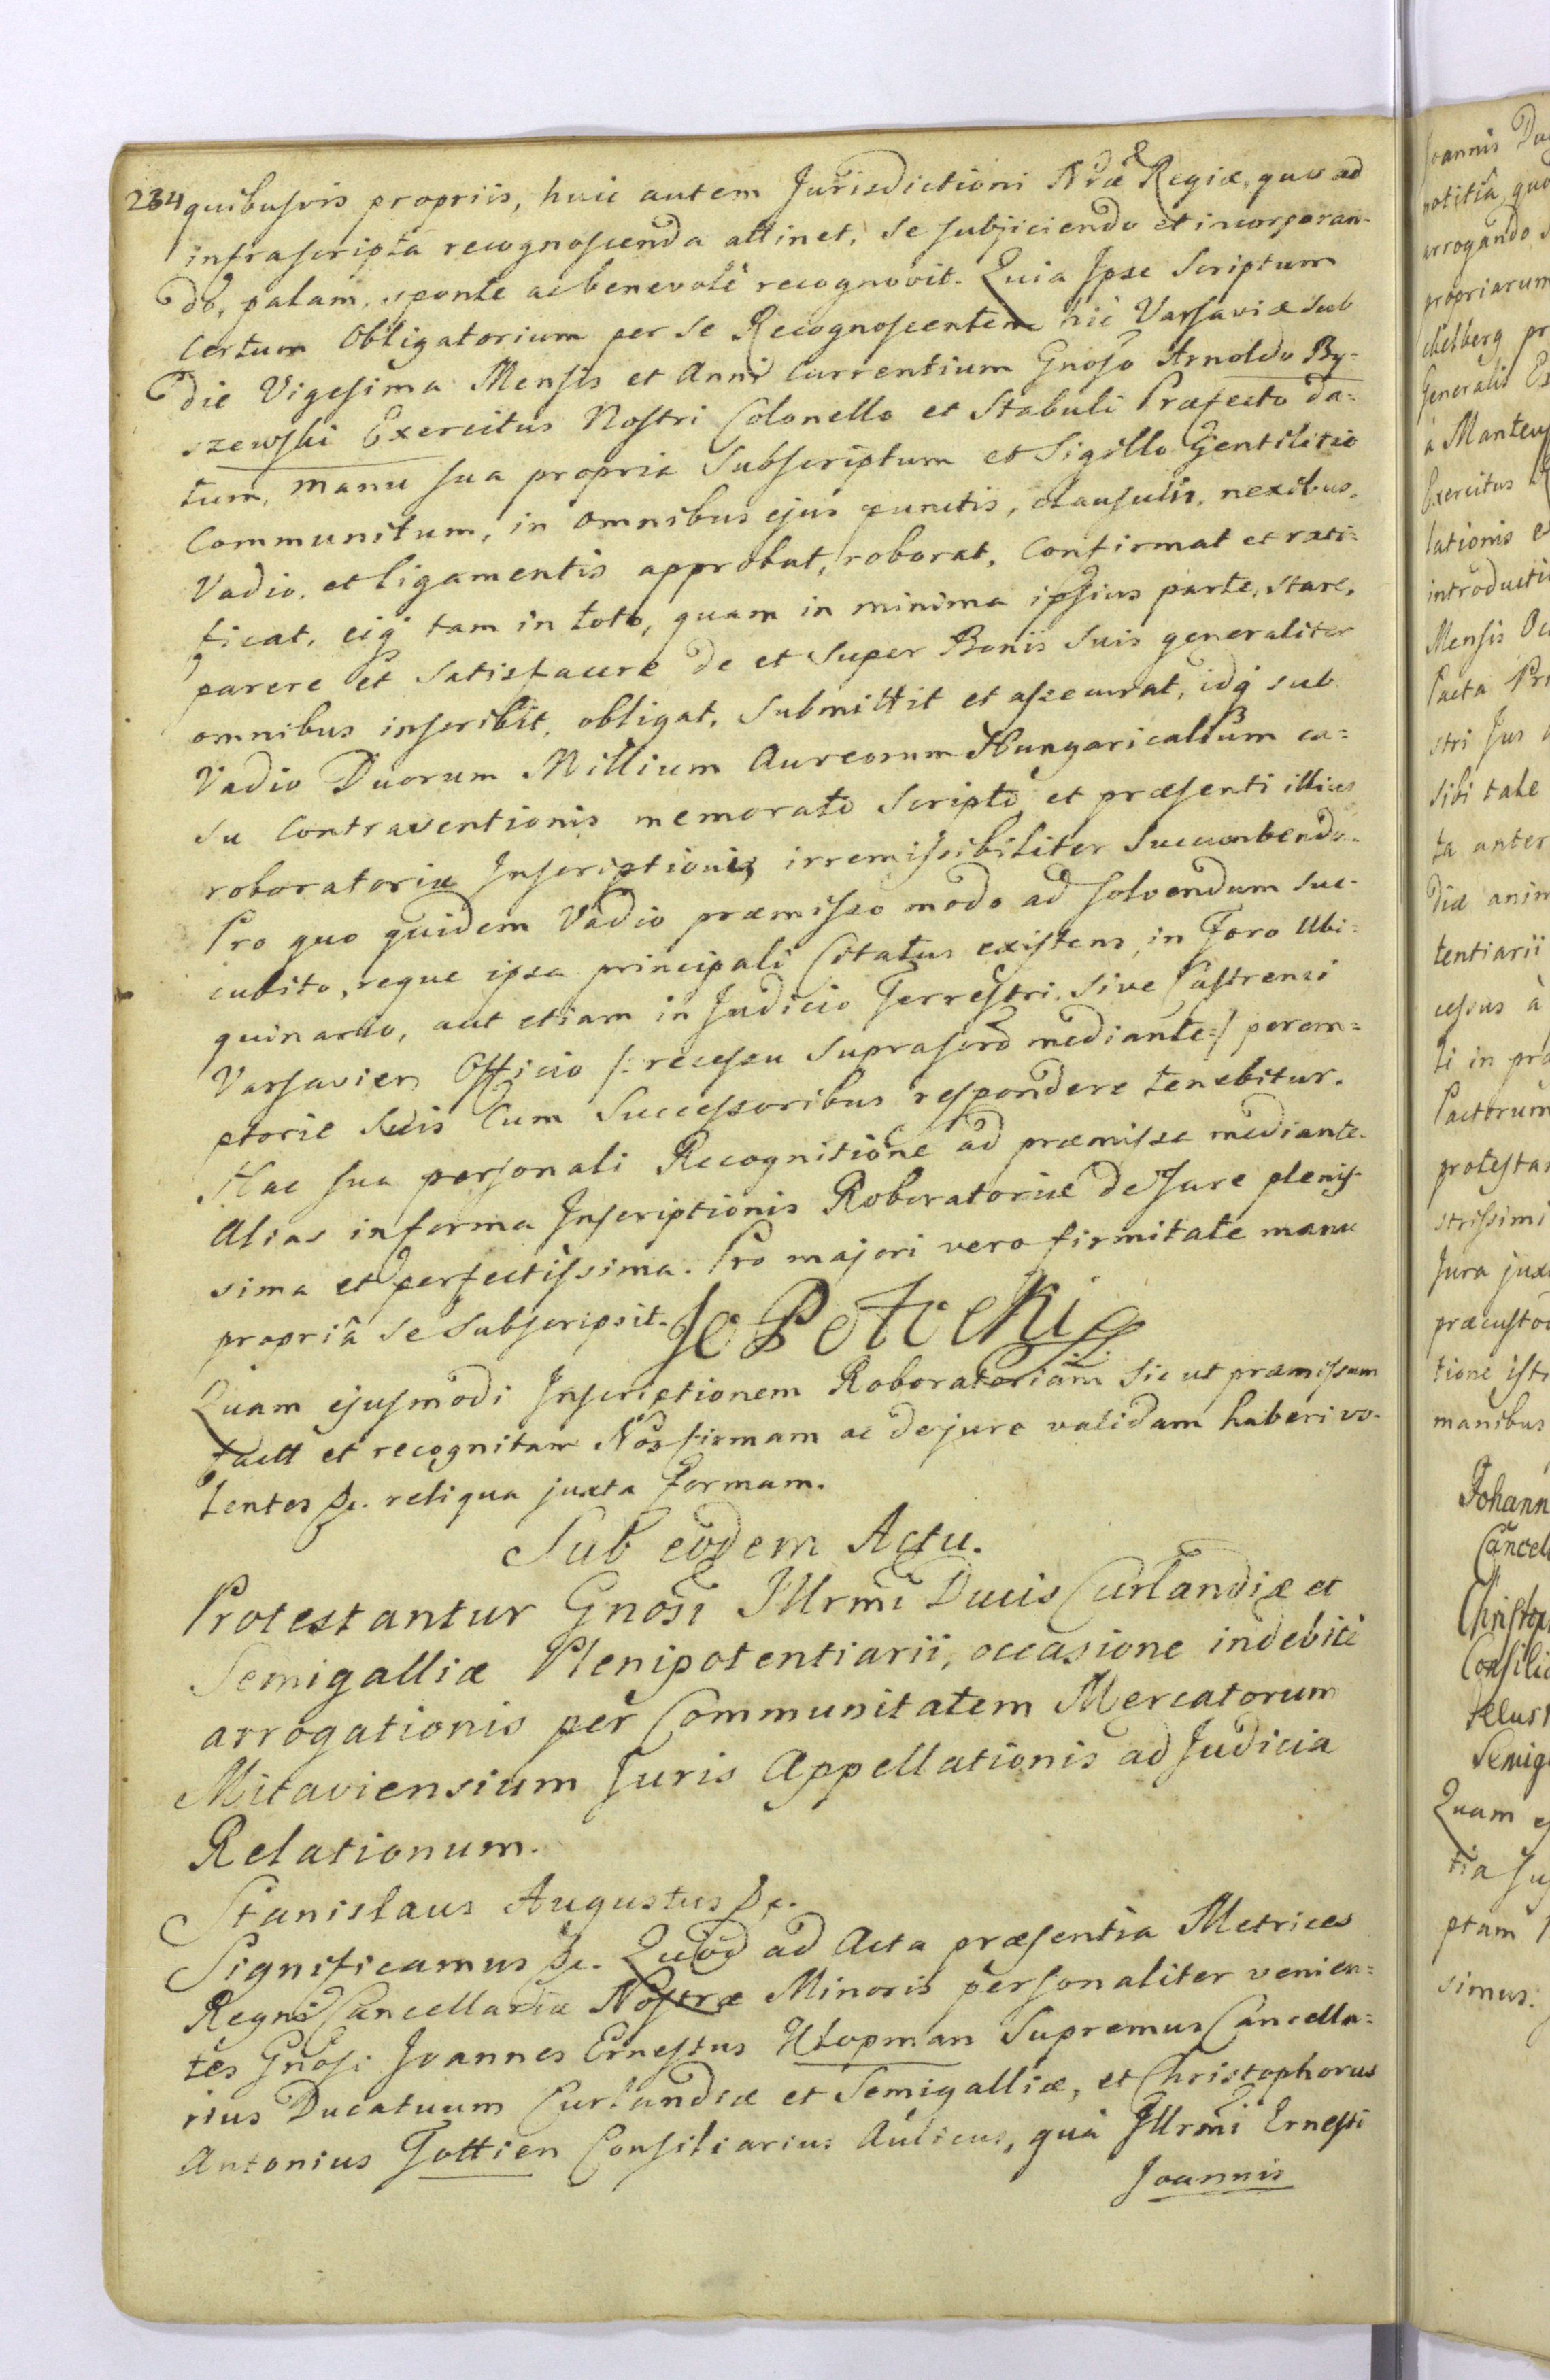 234 quibusvis propriis, huic autem Jurisdictioni Nrae & Regiae, quo ad
infrascripta recognoscenda attinet, se subjiciendo et incorporan-
do, palam, sponte ac benevole recognovit. Quia Ipse Scriptum
Certum Obligatorium per se Recognoscentem hic Varsaviae sub
die Vigesima Mensis et Anni Currentium Gnoso Arnoldo By-
szewski Exercitus Nostri Colonello et Stabuli Praefecto da-
tum, manu sua propria Subscriptum et Sigillo Gentilitio
Communitum, in omnibus ejus punctis, clausulis, nexibus,
Vadio, et ligamentis approbat, roborat, Confirmat et rati-
ficat, eiq tam in toto, quam in minima ipsius parte, stare,
parere et satisfacere de et super Bonis suis generaliter
omnibus inscribit, obligat, submittit et assecurat, idq sub
Vadio Duorum Millium Aureorum Hungaricalium ca-
su Contraventionis memorato Scripto et praesenti illius
roboratoriae Inscriptionis, irremissibiliter succumbendo.
Pro quo quidem Vadio praemisso modo ad solvendum suc-
cubito, reque ipsa principali Citatus existens, in Foro Ubi-
quinario, aut etiam in Judicio Terrestri, sive Castrensi
Varsavien Officio /: recessu suprascro mediante :/ perem-
ptorie suis Cum Successoribus respondere tenebitur.
Hac sua personali Recognitione ad praemissa mediante.
Alias in forma Inscriptionis Roboratoriae de Jure plenis-
sima et perfectissima. Pro majori vero firmitate manu
propriâ se subscripsit. Potocki
Quam ejusmodi Inscriptionem Roboratoriam sic ut praemissum
factt et recognitam Nos firmam ac de jure validam haberi vo-
lentes &c. reliqua juxta formam.
Sub eodem Actu.
Protestantur Gnosi Illrmi Ducis Curlandiae et
Semigalliae Plenipotentiarii, occasione indebitè
arrogationis per Communitatem Mercatorum
Mitaviensium Juris Appellationis ad Judicia
Relationum.
Stanislaus Augustus &c.
Significamus &c. Quod ad Acta praesentia Metrices
Regni Cancellariae Nostrae Minoris personaliter venien-
tes Gnosi Joannes Ernestus Klopman Supremus Cancella-
rius Ducatuum Curlandiae et Semigalliae, et Christophorus
Antonius Tottien Consiliarius Aulicus, quà Illrmi Ernesti
Joannis